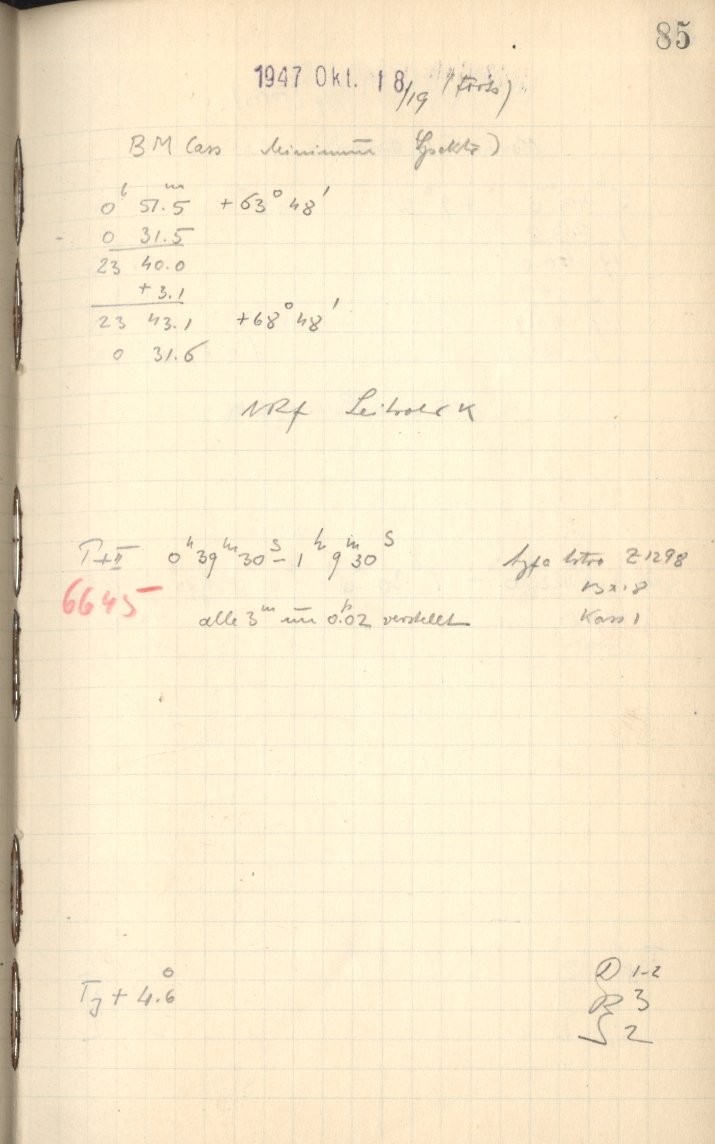 85
1947 Okt. 18/19
BM Cass Minimum
0h 51m.5 +63° 48'
- 0 31.5
23 40.0
+ 3.1
23 43.1 +68° 48'
0 31.6
NRf Leitrohr K
I+II 0h 39m 30s - 1h 9m 30s Agfa Astro Z1298
6645
alle 3m um 0.02 verstellt Kass 1
+ 4.6°
D 1-2
R 3
S 2